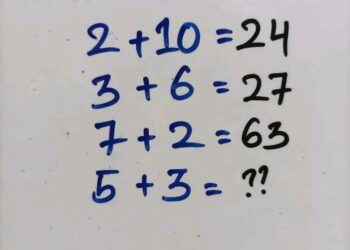 2 + 10 = 24
3 + 6 = 27
7 + 2 = 63
5 + 3 = ??